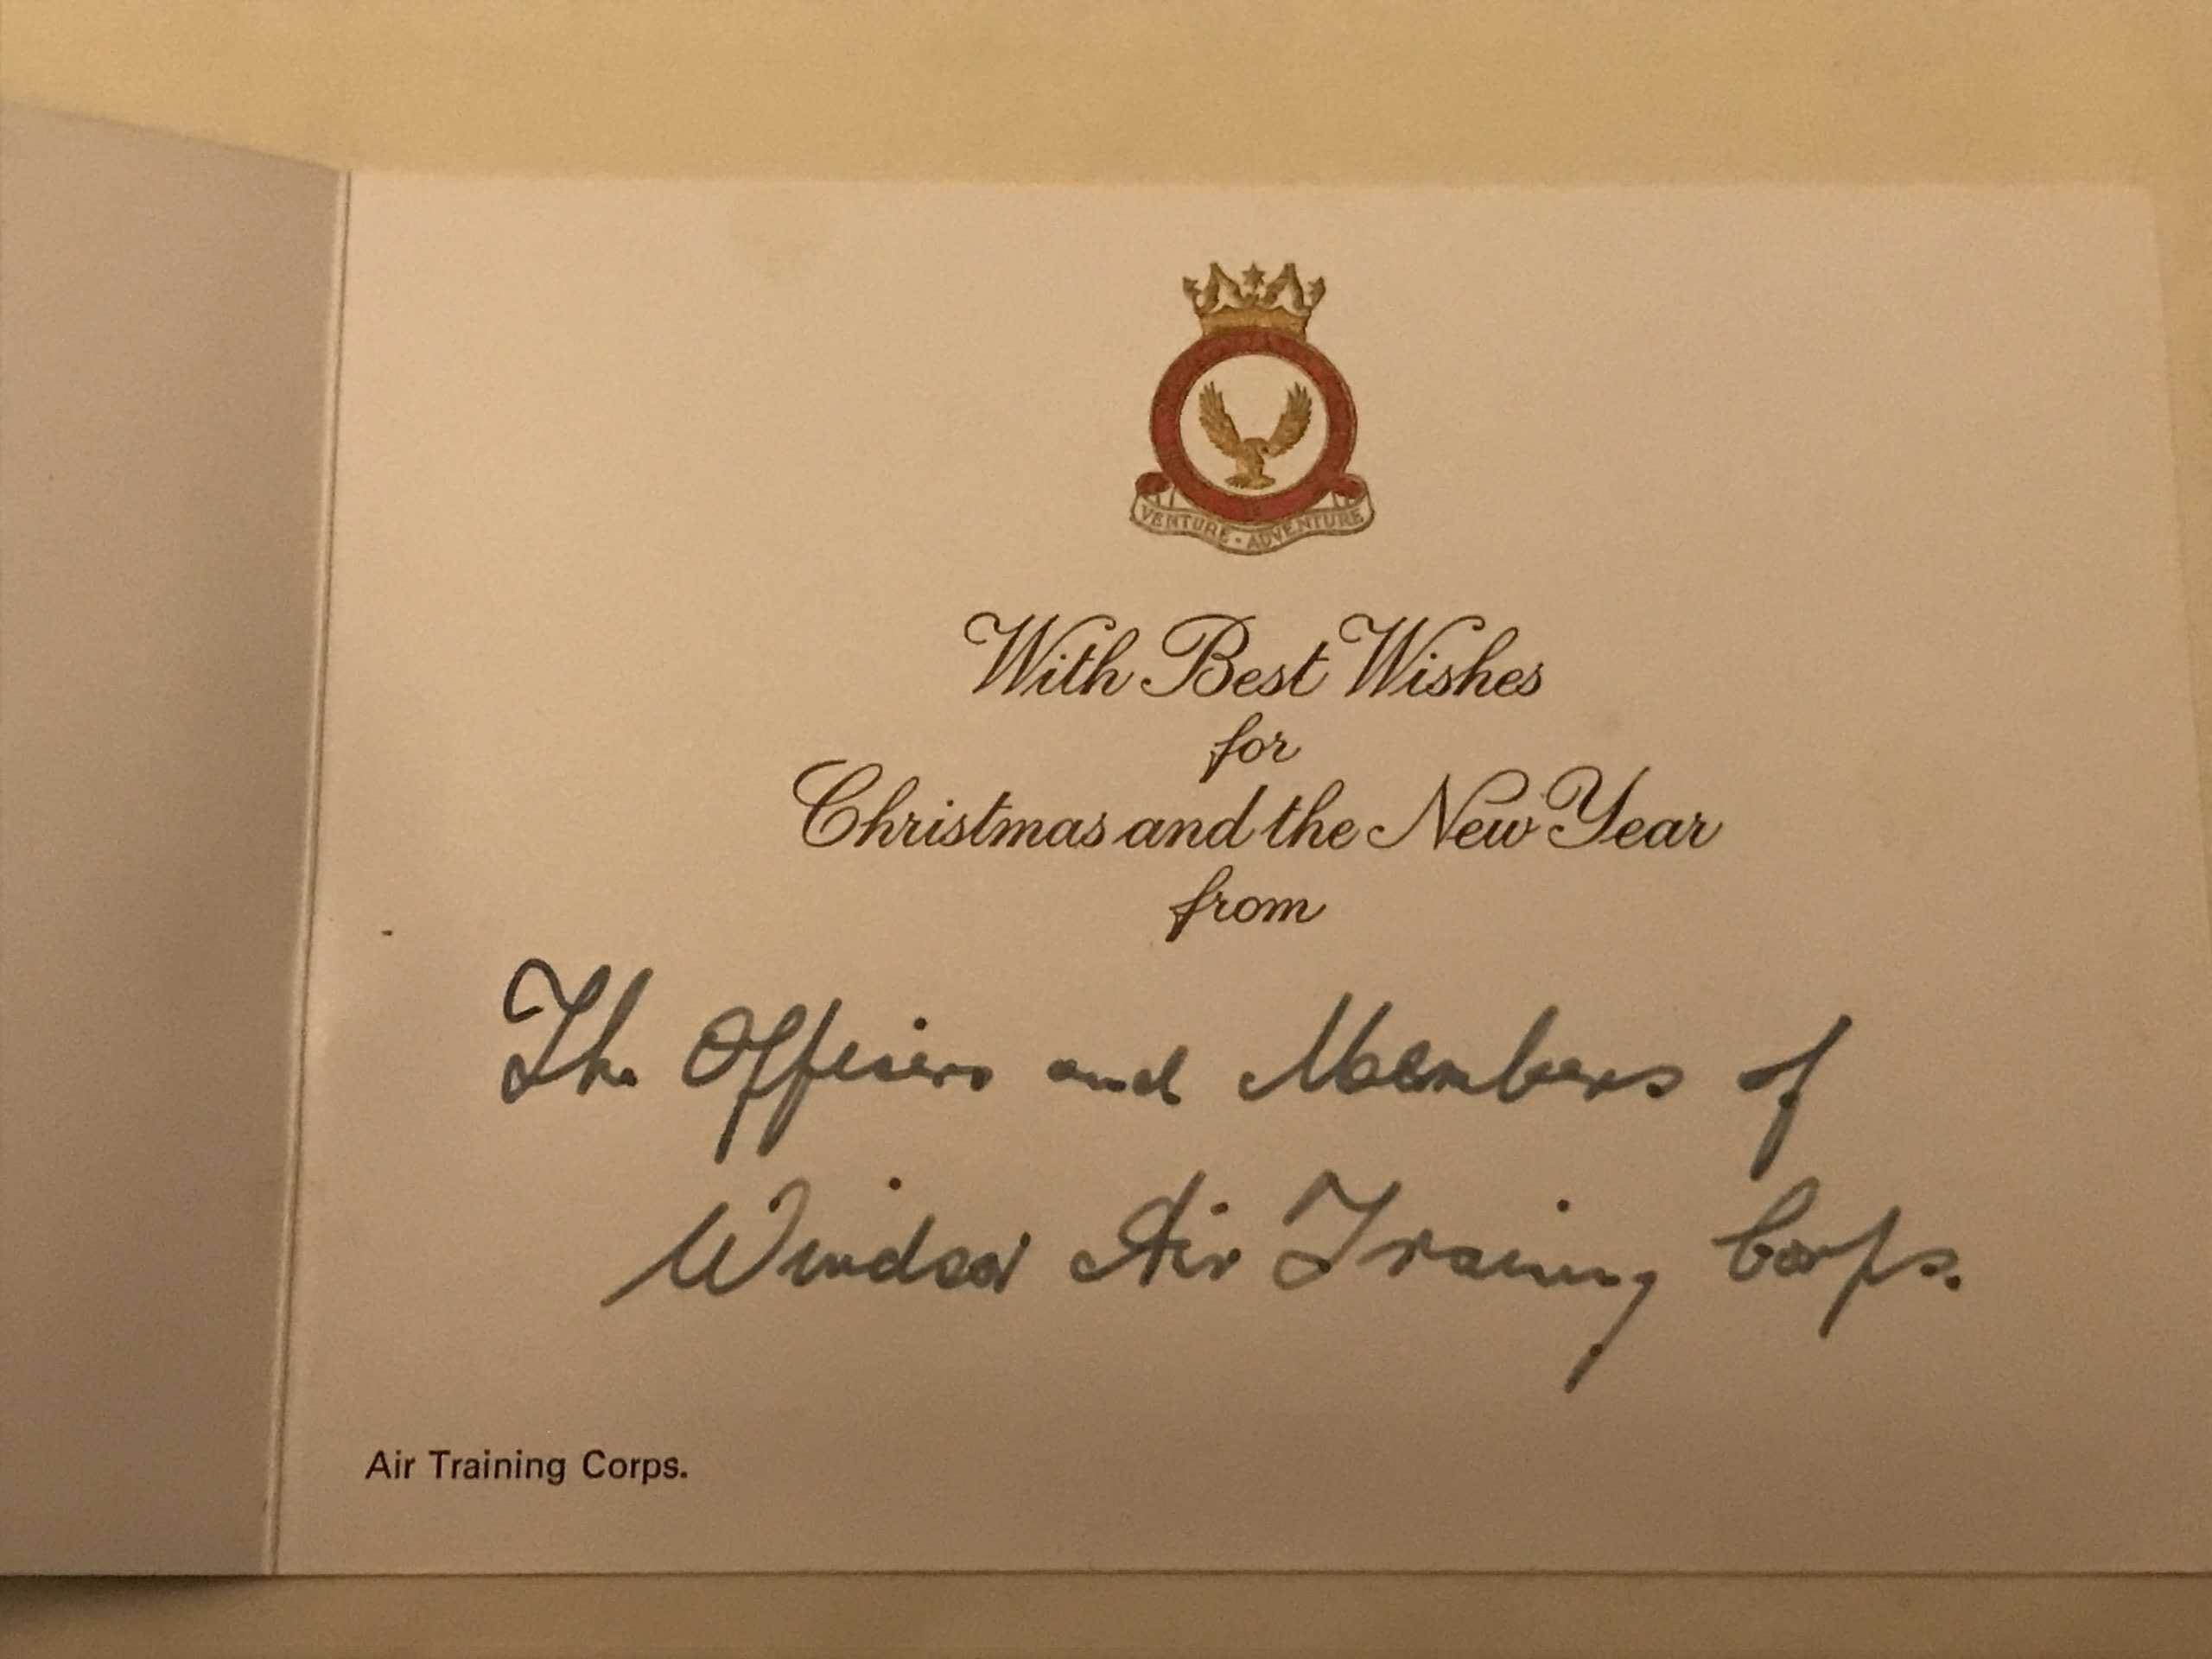 VENTURE · ADVENTURE
With Best Wishes
for
Christmas and the New Year
from
The Officers and Members of
Windsor Air Training Corps.
Air Training Corps.